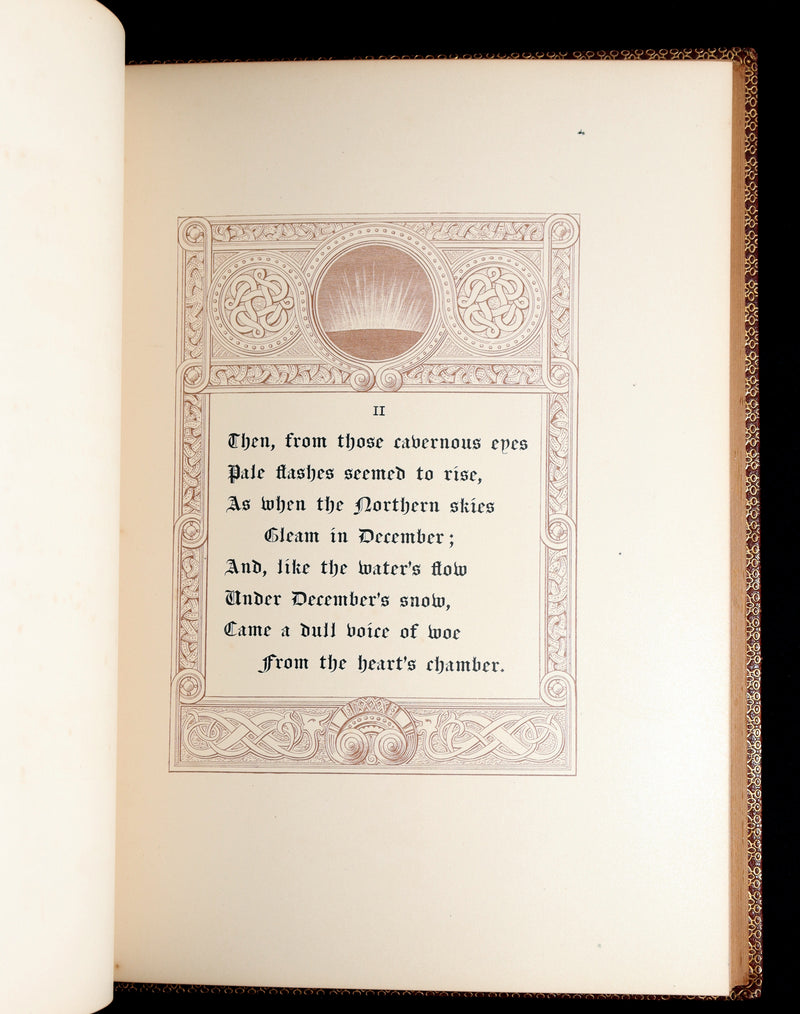 II
Then, from those cavernous eyes
Pale flashes seemed to rise,
As when the Northern skies
Gleam in December;
And, like the water's flow
Under December's snow,
Came a dull voice of woe
From the heart's chamber.